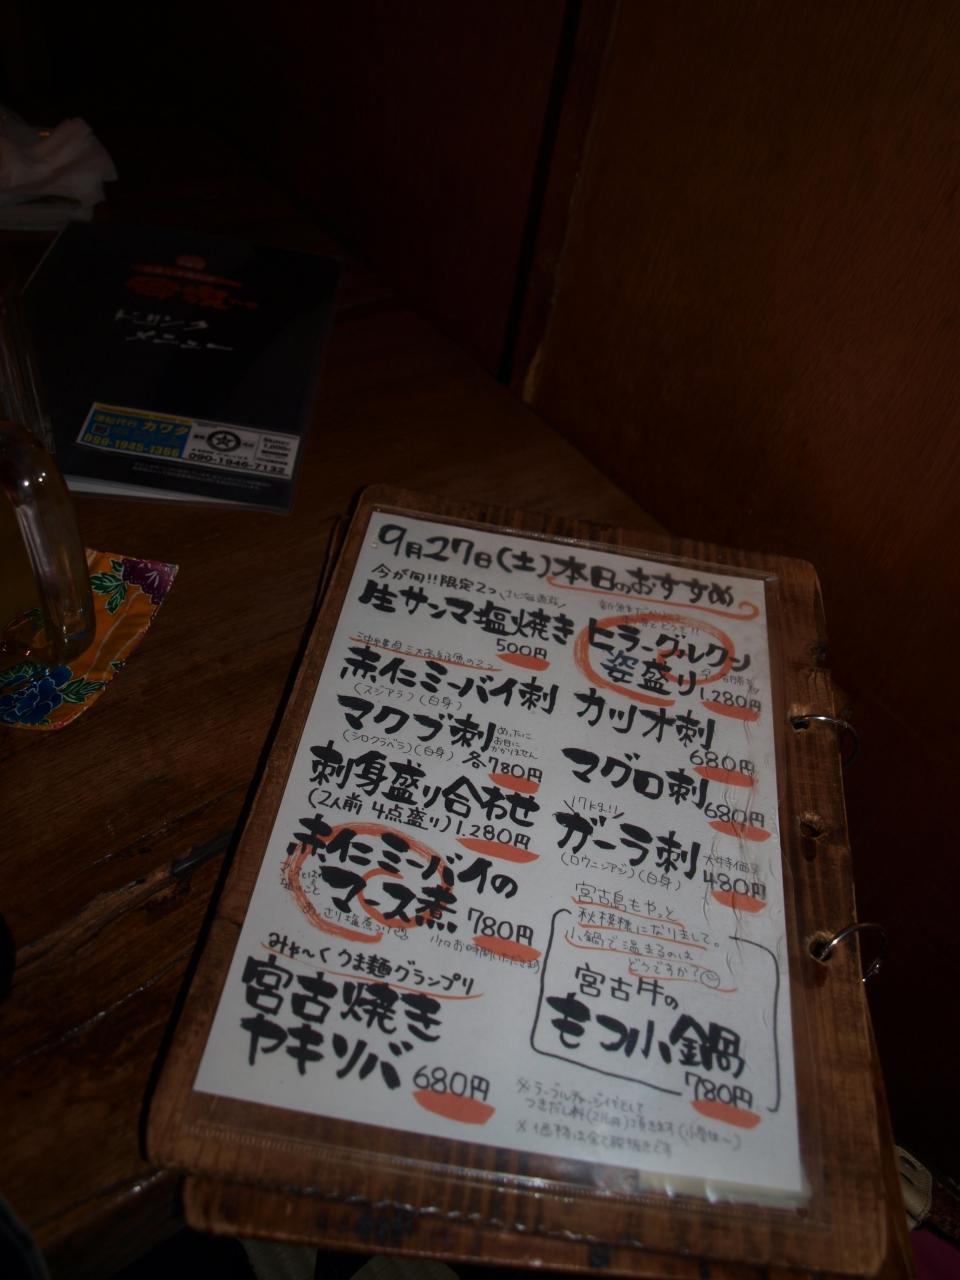 ドリンク
メニュー
運転代行 カワタ
090-1945-1366
090-1946-7132
9月27日(土)本日のおすすめ
今が旬!!限定2つ
生サンマ塩焼き
500円
赤仁ミーバイ刺
(スジアラ)(白身)
マクブ刺
(シロクラベラ)(白身)
めったに
お目に
かかりません
各780円
刺身盛り合わせ
(2人前 4点盛り) 1.280円
赤仁ミーバイの
マース煮
780円
みゃ〜くうま麺グランプリ
宮古焼き
ヤキソバ
680円
ヒラーグルクン
姿盛り
1.280円
カツオ刺
680円
マグロ刺
680円
17kg!!
ガーラ刺
(ロウニンアジ)(白身)
大特価
480円
宮古島もやっと
秋模様になりまして。
小鍋で温まるのは
どうですか?
宮古牛の
もつ小鍋
780円
※テーブルチャージ代として
※価格は全て税抜きです